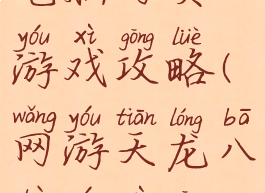 yóu xì gōng lüè
游戏攻略(
wǎng yóu tiān lóng bā
网游天龙八